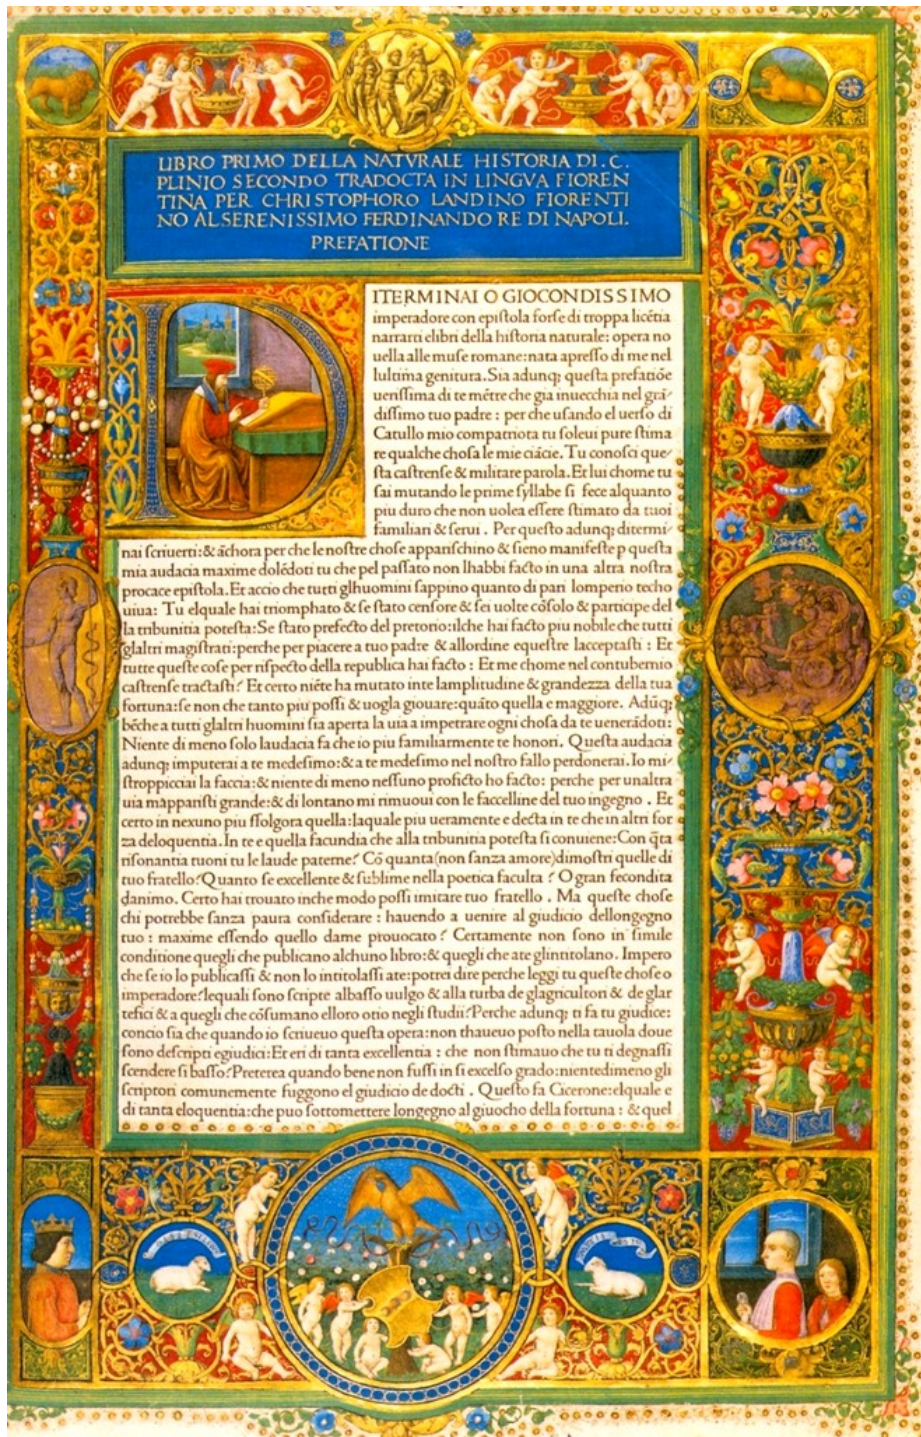 LIBRO PRIMO DELLA NATVRALE HISTORIA DI . C.
PLINIO SECONDO TRADOCTA IN LINGVA FIOREN
TINA PER CHRISTOPHORO LANDINO FIORENTI
NO AL SERENISSIMO FERDINANDO RE DI NAPOLI.
PREFATIONE
DITERMINAI O GIOCONDISSIMO
imperadore con epiſtola forſe di troppa licẽtia
narrarti elibri della hiſtoria naturale: opera no
uella alle muſe romane: nata apreſſo di me nel
lultima genitura. Sia adunq; queſta prefatiõe
ueriſſima di te mẽtre che gia inuecchia nel grã⸗
diſſimo tuo padre : per che uſando el uerſo di
Catullo mio compatriota tu ſoleui pure ſtima
re qualche choſa le mie ciãcie. Tu conoſci que⸗
ſta caſtrenſe & militare parola. Et lui chome tu
ſai mutando le prime ſyllabe ſi fece alquanto
piu duro che non uolea eſſere ſtimato da tuoi
familiari & ſerui . Per queſto adunq; ditermi⸗
nai ſcriuerti: & ãchora per che le noſtre choſe appariſchino & ſieno manifeſte p queſta
mia audacia maxime dolẽdoti tu che pel paſſato non lhabbi facto in una altra noſtra
procace epiſtola. Et accio che tutti glhuomini ſappino quanto di pari lomperio techo
uiua: Tu elquale hai triomphato & ſe ſtato cenſore & ſei uolte cõſolo & participe del
la tribunitia poteſta: Se ſtato prefecto del pretorio: ilche hai facto piu nobile che tutti
glaltri magiſtrati: perche per piacere a tuo padre & allordine equeſtre lacceptaſti : Et
tutte queſte coſe per riſpecto della republica hai facto : Et me chome nel contubernio
caſtrenſe tractaſti? Et certo niẽte ha mutato inte lamplitudine & grandezza della tua
fortuna: ſe non che tanto piu poſſi & uogla giouare: quãto quella e maggiore. Adũq;
bẽche a tutti glaltri huomini ſia aperta la uia a impetrare ogni choſa da te uenerãdoti:
Niente di meno ſolo laudacia fa che io piu familiarmente te honori. Queſta audacia
adunq; imputerai a te medeſimo: & a te medeſimo nel noſtro fallo perdonerai. Io mi⸗
ſtroppicciai la faccia: & niente di meno neſſuno proficto ho facto: perche per unaltra
uia mappariſti grande: & di lontano mi rimuoui con le faccelline del tuo ingegno . Et
certo in nexuno piu ffolgora quella: laquale piu ueramente e decta in te che in altri for
za deloquentia. In te e quella facundia che alla tribunitia poteſta ſi conuiene: Con q̃ta
riſonantia tuoni tu le laude paterne? Cõ quanta (non ſanza amore) dimoſtri quelle di
tuo fratello? Quanto ſe excellente & ſublime nella poetica faculta ? O gran fecondita
danimo. Certo hai trouato inche modo poſſi imitare tuo fratello . Ma queſte choſe
chi potrebbe ſanza paura conſiderare : hauendo a uenire al giudicio dellongegno
tuo : maxime eſſendo quello dame prouocato ? Certamente non ſono in ſimile
conditione quegli che publicano alchuno libro: & quegli che ate glintitolano. Impero
che ſe io lo publicaſſi & non lo intitolaſſi ate: potrei dire perche leggi tu queſte choſe o
imperadore? lequali ſono ſcripte albaſſo uulgo & alla turba de glagricultori & de glar
tefici & a quegli che cõſumano elloro otio negli ſtudii? Perche adunq; ti fa tu giudice:
concio ſia che quando io ſcriueuo queſta opera: non thaueuo poſto nella tauola doue
ſono deſcripti egiudici: Et eri di tanta excellentia : che non ſtimauo che tu ti degnaſſi
ſcendere ſi baſſo? Preterea quando bene non fuſſi in ſi excelſo grado: nientedimeno gli
ſcriptori comunemente fuggono el giudicio de docti . Queſto fa Cicerone: elquale e
di tanta eloquentia: che puo ſottomettere longegno al giuocho della fortuna : & quel